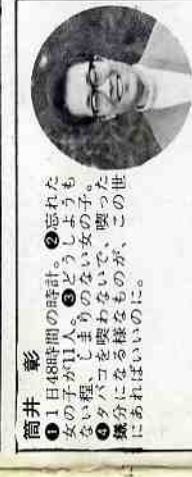 筒井　彰
❶１日48時間の時計。❷忘れた
女の子が11人。❸どうしようも
ない程、しまりのない女の子。
❹タバコを喫わないで、喫った
気分になる様なものが、この世
にあればいいのに。